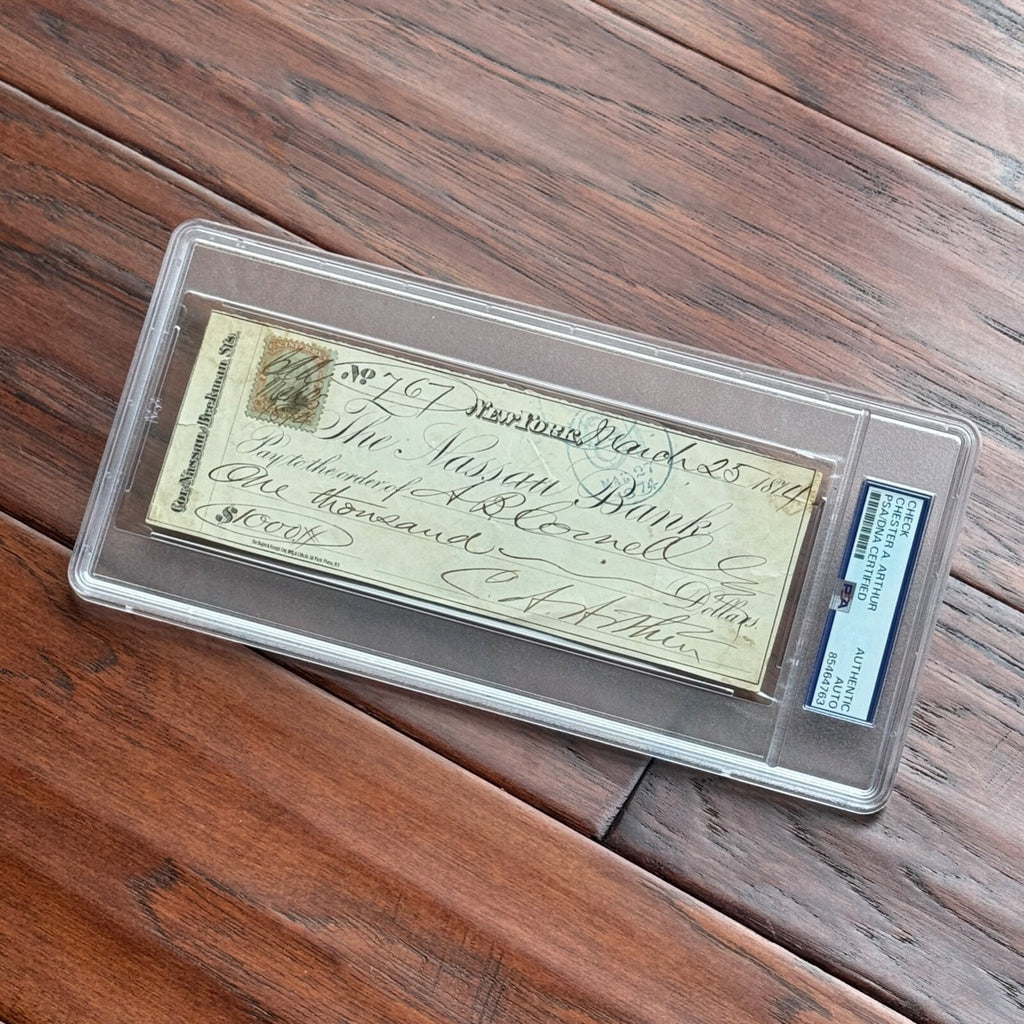 Cor. Nassau & Beekman Sts.
No 767 New York March 25 1874
The Nassau Bank
Pay to the order of A B Cornell
One thousand Dollars
$1000
C A Arthur
CHECK
CHESTER A. ARTHUR
PSA/DNA CERTIFIED
PSA
AUTHENTIC
AUTO
85464763